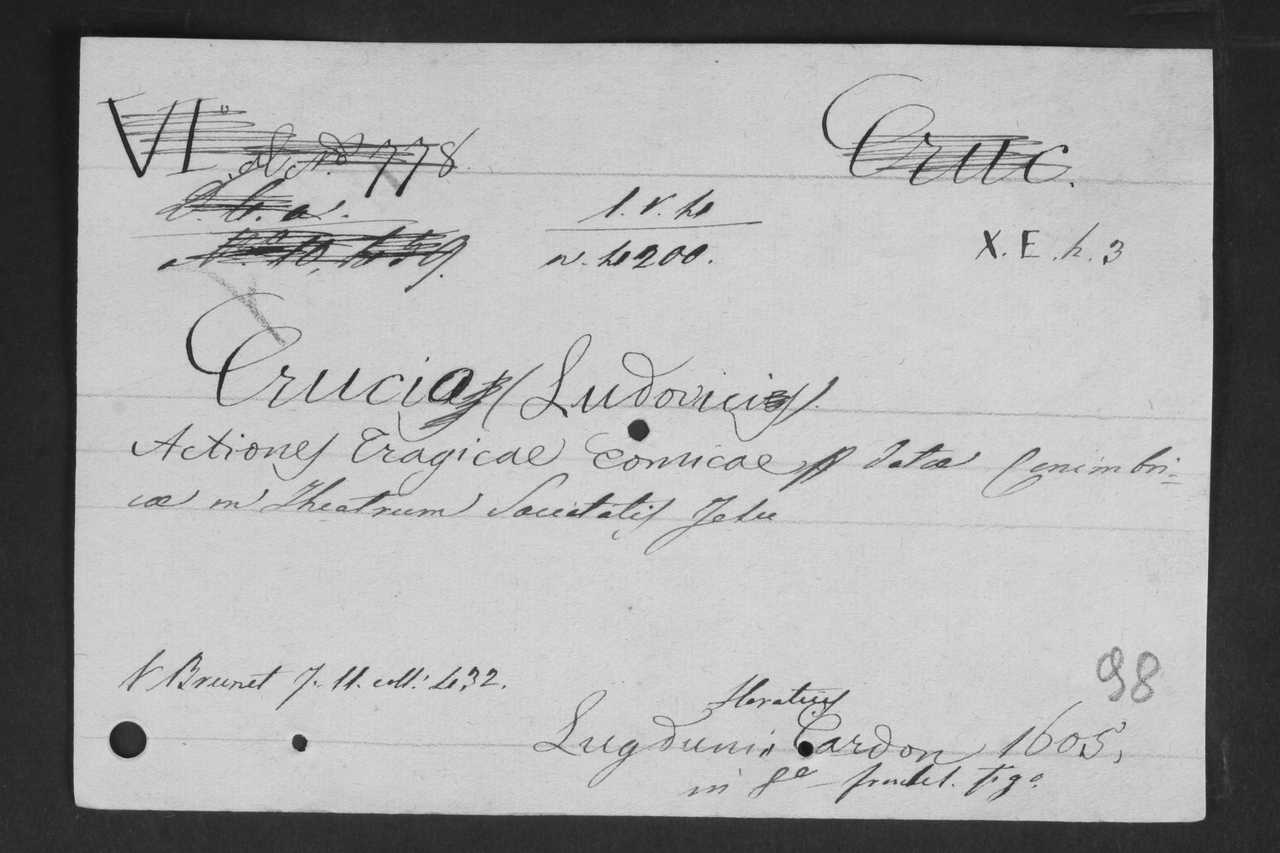 VI° 778.
Cruc.
1. v. 4
n. 4200.
X. E. h. 3
Crucius (Ludovicus).
Actiones Tragicae Comicae datae Conimbri=
cae in Theatrum Societatis Jesu
V Brunet T. II. coll: 432.
98
Horatius
Lugduni, Cardon 1605,
in 8° frontel. fig°